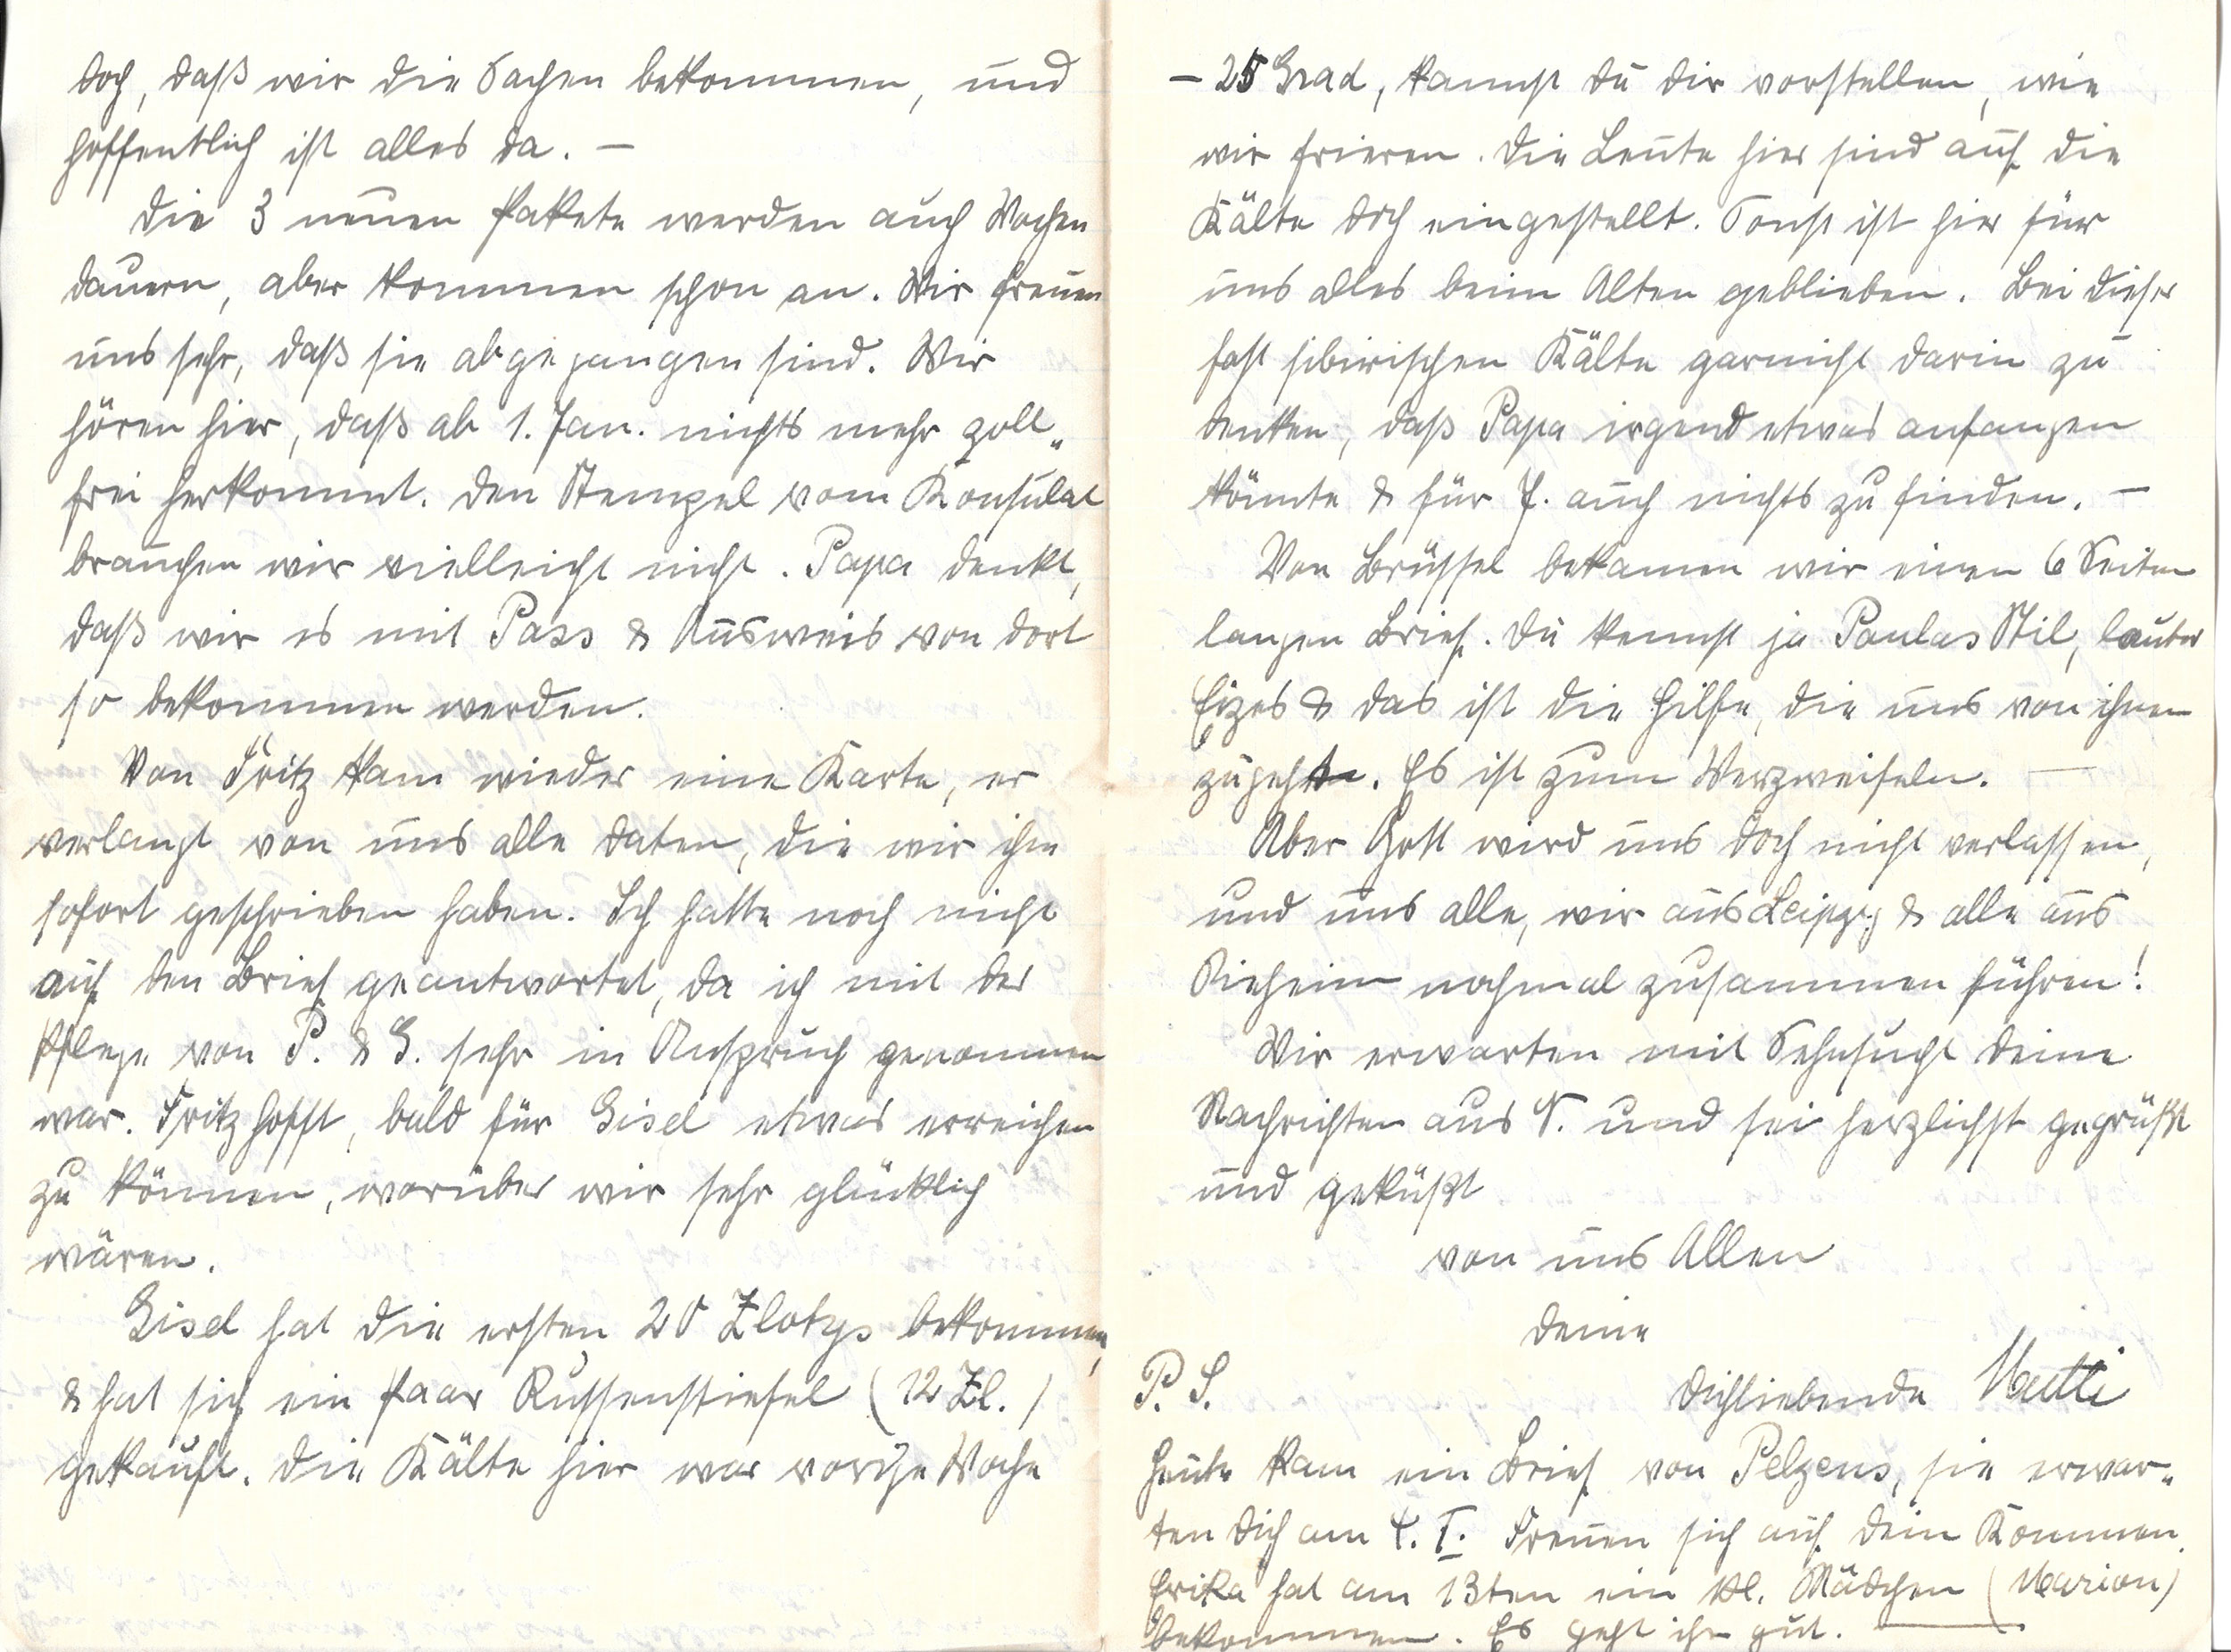 doch, daß wir die Sachen bekommen, und
hoffentlich ist alles da. —
Die 3 neuen Pakete werden auch Wochen
dauern, aber kommen schon an. Wir freuen
uns sehr, daß sie abgegangen sind. Wir
hören hier, daß ab 1. Jan. nichts mehr zoll„
frei herkommt. Den Stempel vom Konsulat
brauchen wir vielleicht nicht. Papa denkt,
daß wir es mit Pass & Ausweis von dort
so bekommen werden.
Von Fritz kam wieder eine Karte, er
verlangt von uns alle Daten, die wir ihm
sofort geschrieben haben. Ich hatte noch nicht
auf den Brief geantwortet, da ich mit der
Pflege von P. & G. sehr in Anspruch genommen
war. Fritz hofft, bald für Gisel etwas erreichen
zu können, worüber wir sehr glücklich
wären.
Gisel hat die ersten 20 Zlotys bekommen,
& hat sich ein Paar Russenstiefel (12 Zl.)
gekauft. Die Kälte hier war vorige Woche
– 25 Grad, kannst Du Dir vorstellen, wie
wir frieren. Die Leute hier sind auf die
Kälte doch eingestellt. Sonst ist hier für
uns alles beim Alten geblieben. Bei dieser
fast sibirischen Kälte garnicht daran zu
denken, daß Papa irgend etwas anfangen
könnte & für J. auch nichts zu finden. —
Von Brüssel bekamen wir einen 6 Seiten
langen Brief. Du kennst ja Paulas Stil, lauter
Eizes & das ist die Hilfe, die uns von ihnen
zugeht. Es ist zum Verzweifeln. —
Aber Gott wird uns doch nicht verlassen,
und uns alle, wir aus Leipzig & alle aus
nochmal zusammen führen!
Wir erwarten mit Sehnsucht Deine
Nachrichten aus N. und sei herzlichst gegrüßt
und geküßt
von uns Allen
Deine
P. S.
Dichliebende Mutti
Heute kam ein Brief von Pelzens, sie erwar„
ten Dich am 4. I. Freuen sich auf Dein Kommen.
Erika hat am 13ten ein kl. Mädchen (Marion)
bekommen. Es geht ihr gut. —